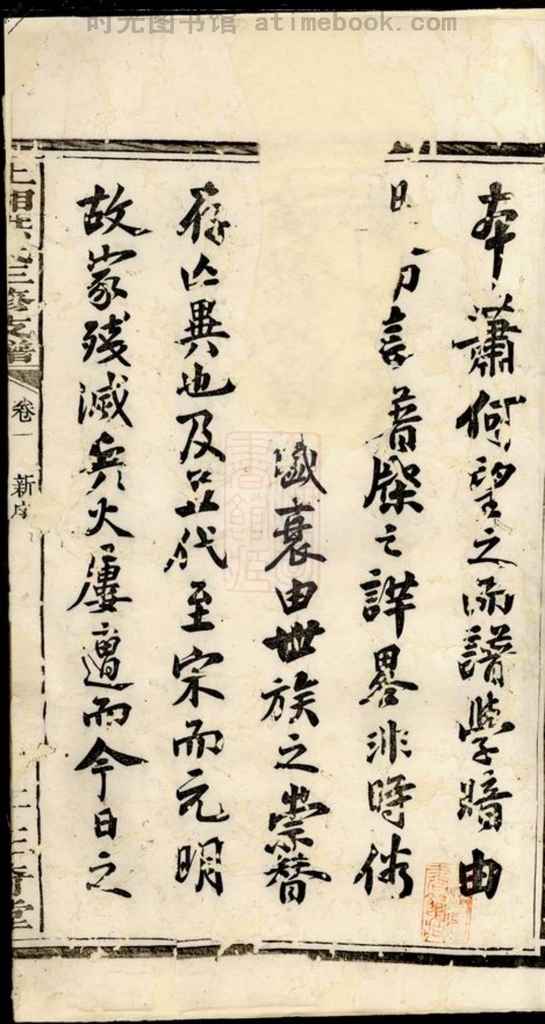 时光图书馆 atimebook.com
蕭何望之而譜學暗由
言普牒之詳畧非時俗
盛衰由世族之崇替
存亡異也及五代至宋而元明
故家殘滅兵火屢遭而今日之
上湘 三修支譜
卷一
新序
堂